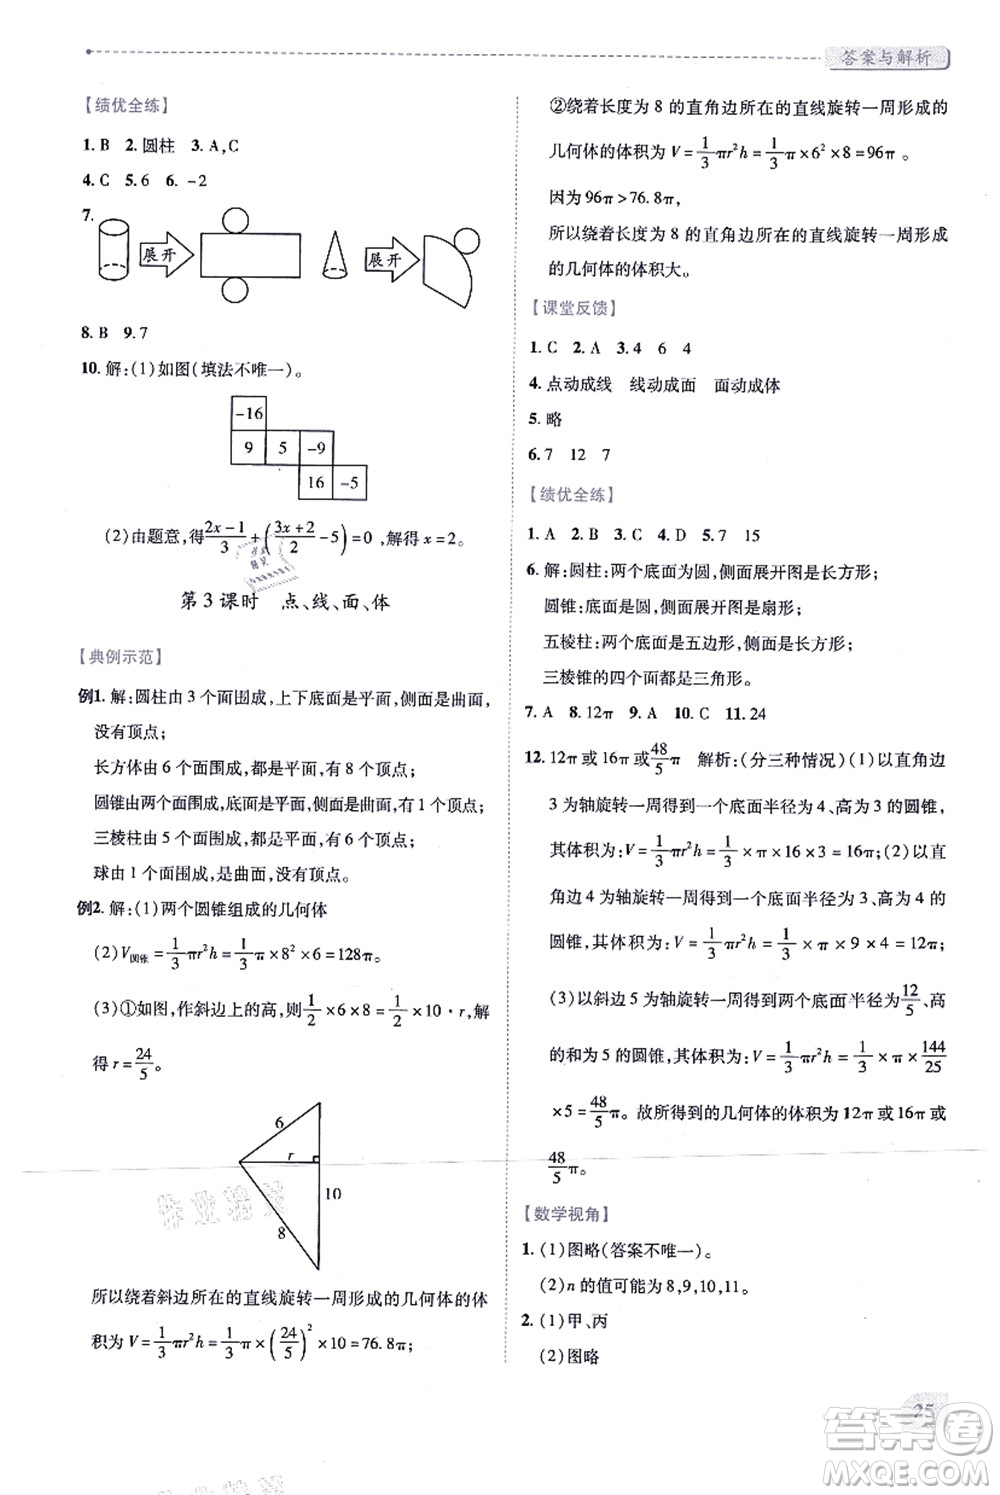 答案与解析
【绩优全练】
1. B 2. 圆柱 3. A,C
4. C 5. 6 6. -2
7.
展开
展开
8. B 9. 7
10. 解:(1)如图(填法不唯一)。
-16
9 5 -9
16 -5
(2)由题意,得(2x-1)/3+((3x+2)/2-5)=0,解得 x=2。
第3课时 点、线、面、体
【典例示范】
例1. 解:圆柱由 3 个面围成,上下底面是平面,侧面是曲面,
没有顶点;
长方体由 6 个面围成,都是平面,有 8 个顶点;
圆锥由两个面围成,底面是平面,侧面是曲面,有 1 个顶点;
三棱柱由 5 个面围成,都是平面,有 6 个顶点;
球由 1 个面围成,是曲面,没有顶点。
例2. 解:(1)两个圆锥组成的几何体
(2)V圆锥=1/3πr²h=1/3π×8²×6=128π。
(3)①如图,作斜边上的高,则1/2×6×8=1/2×10·r,解
得 r=24/5。
6
r
10
8
所以绕着斜边所在的直线旋转一周形成的几何体的体
积为 V=1/3πr²h=1/3π×(24/5)²×10=76.8π;
②绕着长度为 8 的直角边所在的直线旋转一周形成的
几何体的体积为 V=1/3πr²h=1/3π×6²×8=96π。
因为 96π>76.8π,
所以绕着长度为 8 的直角边所在的直线旋转一周形成
的几何体的体积大。
【课堂反馈】
1. C 2. A 3. 4 6 4
4. 点动成线 线动成面 面动成体
5. 略
6. 7 12 7
【绩优全练】
1. A 2. B 3. C 4. D 5. 7 15
6. 解:圆柱:两个底面为圆,侧面展开图是长方形;
圆锥:底面是圆,侧面展开图是扇形;
五棱柱:两个底面是五边形,侧面是长方形;
三棱锥的四个面都是三角形。
7. A 8. 12π 9. A 10. C 11. 24
12. 12π 或 16π 或48/5π 解析:(分三种情况)(1)以直角边
3 为轴旋转一周得到一个底面半径为 4、高为 3 的圆锥,
其体积为:V=1/3πr²h=1/3×π×16×3=16π;(2)以直
角边 4 为轴旋转一周得到一个底面半径为 3、高为 4 的
圆锥,其体积为:V=1/3πr²h=1/3×π×9×4=12π;
(3)以斜边 5 为轴旋转一周得到两个底面半径为12/5、高
的和为 5 的圆锥,其体积为:V=1/3πr²h=1/3×π×144/25
×5=48/5π。故所得到的几何体的体积为 12π 或 16π 或
48/5π。
【数学视角】
1. (1)图略(答案不唯一)。
(2)n 的值可能为 8,9,10,11。
2. (1)甲、丙
(2)图略
25
答案圈
MXQE.COM
作业精灵